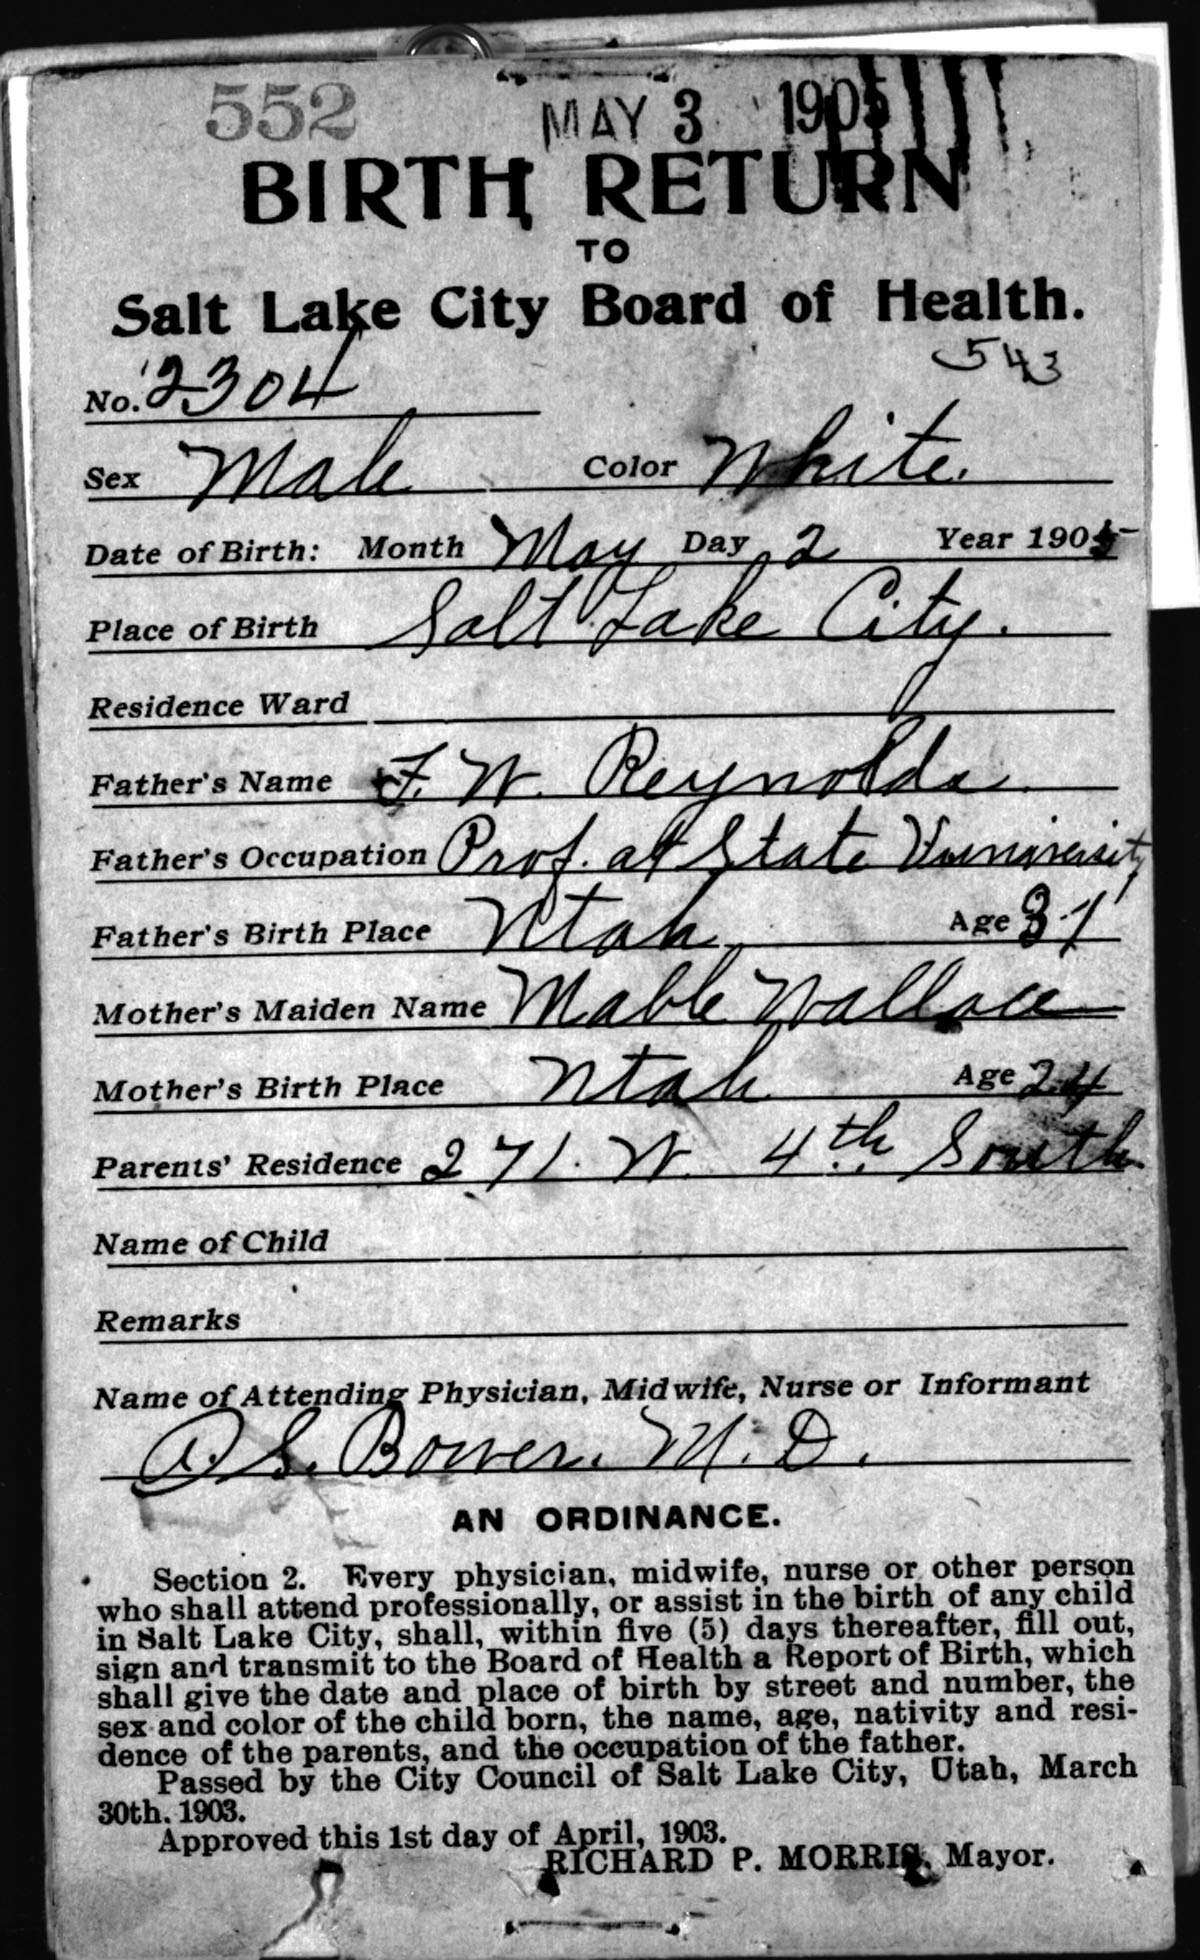 552 MAY 3 1905
BIRTH RETURN
TO
Salt Lake City Board of Health.
543
No. 2304
Sex Male Color White.
Date of Birth: Month May Day 2 Year 1905
Place of Birth Salt Lake City.
Residence Ward
Father's Name F. W. Reynolds.
Father's Occupation Prof. at State University
Father's Birth Place Utah Age 31
Mother's Maiden Name Mable Wallace
Mother's Birth Place Utah Age 24
Parents' Residence 271. W. 4th South
Name of Child
Remarks
Name of Attending Physician, Midwife, Nurse or Informant
A. S. Bower. M. D.
AN ORDINANCE.
Section 2. Every physician, midwife, nurse or other person
who shall attend professionally, or assist in the birth of any child
in Salt Lake City, shall, within five (5) days thereafter, fill out,
sign and transmit to the Board of Health a Report of Birth, which
shall give the date and place of birth by street and number, the
sex and color of the child born, the name, age, nativity and resi-
dence of the parents, and the occupation of the father.
Passed by the City Council of Salt Lake City, Utah, March
30th. 1903.
Approved this 1st day of April, 1903.
RICHARD P. MORRIS, Mayor.